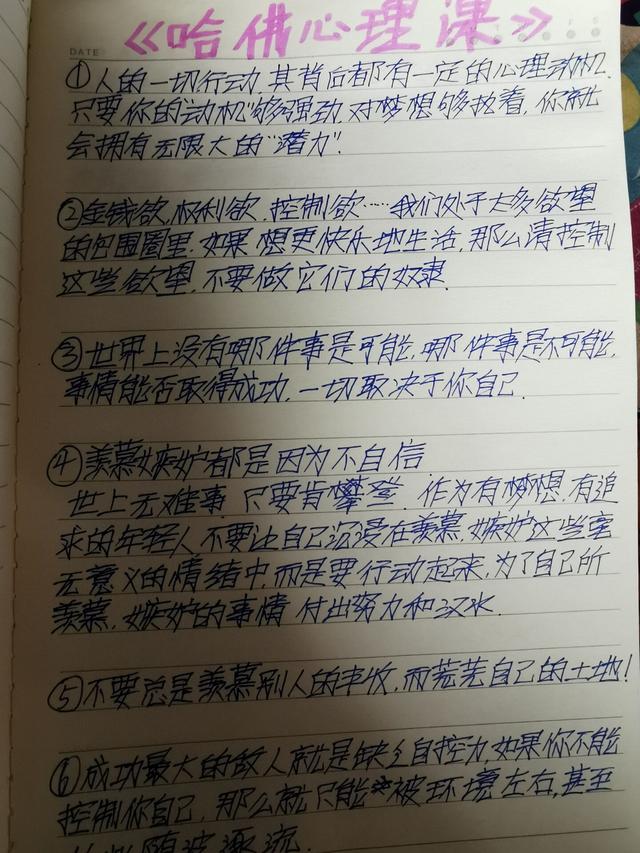 《哈佛心理课》
DATE
①人的一切行动,其背后都有一定的心理动机.
只要你的"动机"够强劲,对梦想够执着,你就
会拥有无限大的"潜力".
②金钱欲,权利欲,控制欲……我们处于太多欲望
的包围圈里.如果想更快乐地生活,那么请控制
这些欲望,不要做它们的奴隶.
③世界上没有哪件事是可能,哪件事是不可能,
事情能否取得成功,一切取决于你自己.
④羡慕嫉妒都是因为不自信
世上无难事,只要肯攀登.作为有梦想,有追
求的年轻人,不要让自己沉浸在羡慕,嫉妒这些毫
无意义的情绪中,而是要行动起来,为了自己所
羡慕,嫉妒的事情,付出努力和汗水.
⑤不要总是羡慕别人的丰收,而荒芜自己的土地!
⑥成功最大的敌人就是缺乏自控力,如果你不能
控制你自己,那么就只能被环境左右,甚至
随波逐流.